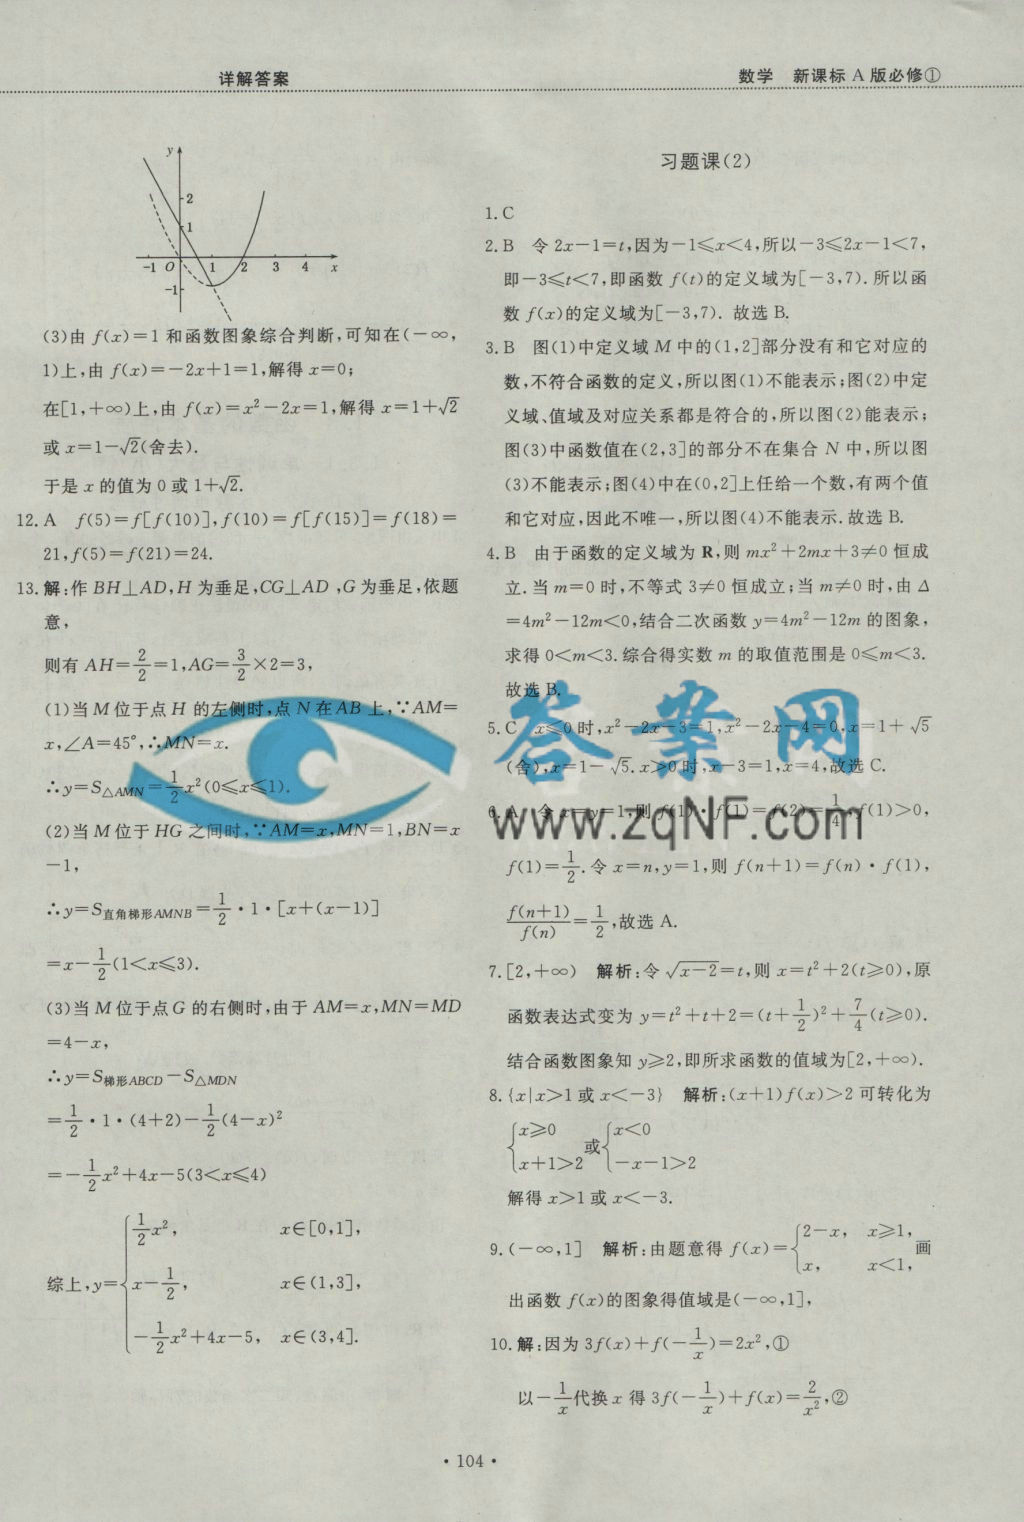 详解答案
数学 新课标 A 版必修①
y
2
1
-1 O 1 2 3 4 x
-1
(3)由 f(x)=1 和函数图象综合判断,可知在(-∞,
1)上,由 f(x)=-2x+1=1,解得 x=0;
在[1,+∞)上,由 f(x)=x²-2x=1,解得 x=1+√2
或 x=1-√2(舍去).
于是 x 的值为 0 或 1+√2.
12. A f(5)=f[f(10)],f(10)=f[f(15)]=f(18)=
21,f(5)=f(21)=24.
13. 解:作 BH⊥AD,H 为垂足,CG⊥AD ,G 为垂足,依题
意,
则有 AH=2/2=1,AG=3/2×2=3,
(1)当 M 位于点 H 的左侧时,点 N 在 AB 上,∵AM=
x,∠A=45°,∴MN=x.
∴y=S△AMN=1/2x²(0≤x≤1).
(2)当 M 位于 HG 之间时,∵AM=x,MN=1,BN=x
-1,
∴y=S直角梯形AMNB=1/2·1·[x+(x-1)]
=x-1/2(1<x≤3).
(3)当 M 位于点 G 的右侧时,由于 AM=x,MN=MD
=4-x,
∴y=S梯形ABCD-S△MDN
=1/2·1·(4+2)-1/2(4-x)²
=-1/2x²+4x-5(3<x≤4)
综上,y={1/2x², x∈[0,1],
x-1/2, x∈(1,3],
-1/2x²+4x-5, x∈(3,4].
习题课(2)
1. C
2. B 令 2x-1=t,因为-1≤x<4,所以-3≤2x-1<7,
即-3≤t<7,即函数 f(t)的定义域为[-3,7). 所以函
数 f(x)的定义域为[-3,7). 故选 B.
3. B 图(1)中定义域 M 中的(1,2]部分没有和它对应的
数,不符合函数的定义,所以图(1)不能表示;图(2)中定
义域、值域及对应关系都是符合的,所以图(2)能表示;
图(3)中函数值在(2,3]的部分不在集合 N 中,所以图
(3)不能表示;图(4)中在(0,2]上任给一个数,有两个值
和它对应,因此不唯一,所以图(4)不能表示. 故选 B.
4. B 由于函数的定义域为 R,则 mx²+2mx+3≠0 恒成
立. 当 m=0 时,不等式 3≠0 恒成立;当 m≠0 时,由 Δ
=4m²-12m<0,结合二次函数 y=4m²-12m 的图象,
求得 0<m<3. 综合得实数 m 的取值范围是 0≤m<3.
故选 B.
5. C x≤0 时,x²-2x-3=1,x²-2x-4=0,x=1+√5
(舍),x=1-√5. x>0 时,x-3=1,x=4,故选 C.
6. A 令 x=y=1,则 f(1)·f(1)=f(2)=1/4,f(1)>0,
f(1)=1/2. 令 x=n,y=1,则 f(n+1)=f(n)·f(1),
f(n+1)/f(n)=1/2,故选 A.
7. [2,+∞) 解析:令√(x-2)=t,则 x=t²+2(t≥0),原
函数表达式变为 y=t²+t+2=(t+1/2)²+7/4(t≥0).
结合函数图象知 y≥2,即所求函数的值域为[2,+∞).
8. {x|x>1 或 x<-3} 解析:(x+1)f(x)>2 可转化为
{x≥0 或 {x<0
x+1>2 -x-1>2
解得 x>1 或 x<-3.
9. (-∞,1] 解析:由题意得 f(x)={2-x, x≥1, x, x<1, 画
出函数 f(x)的图象得值域是(-∞,1],
10. 解:因为 3f(x)+f(-1/x)=2x²,①
以-1/x代换 x 得 3f(-1/x)+f(x)=2/x²,②
答案网
www.zqNF.com
· 104 ·